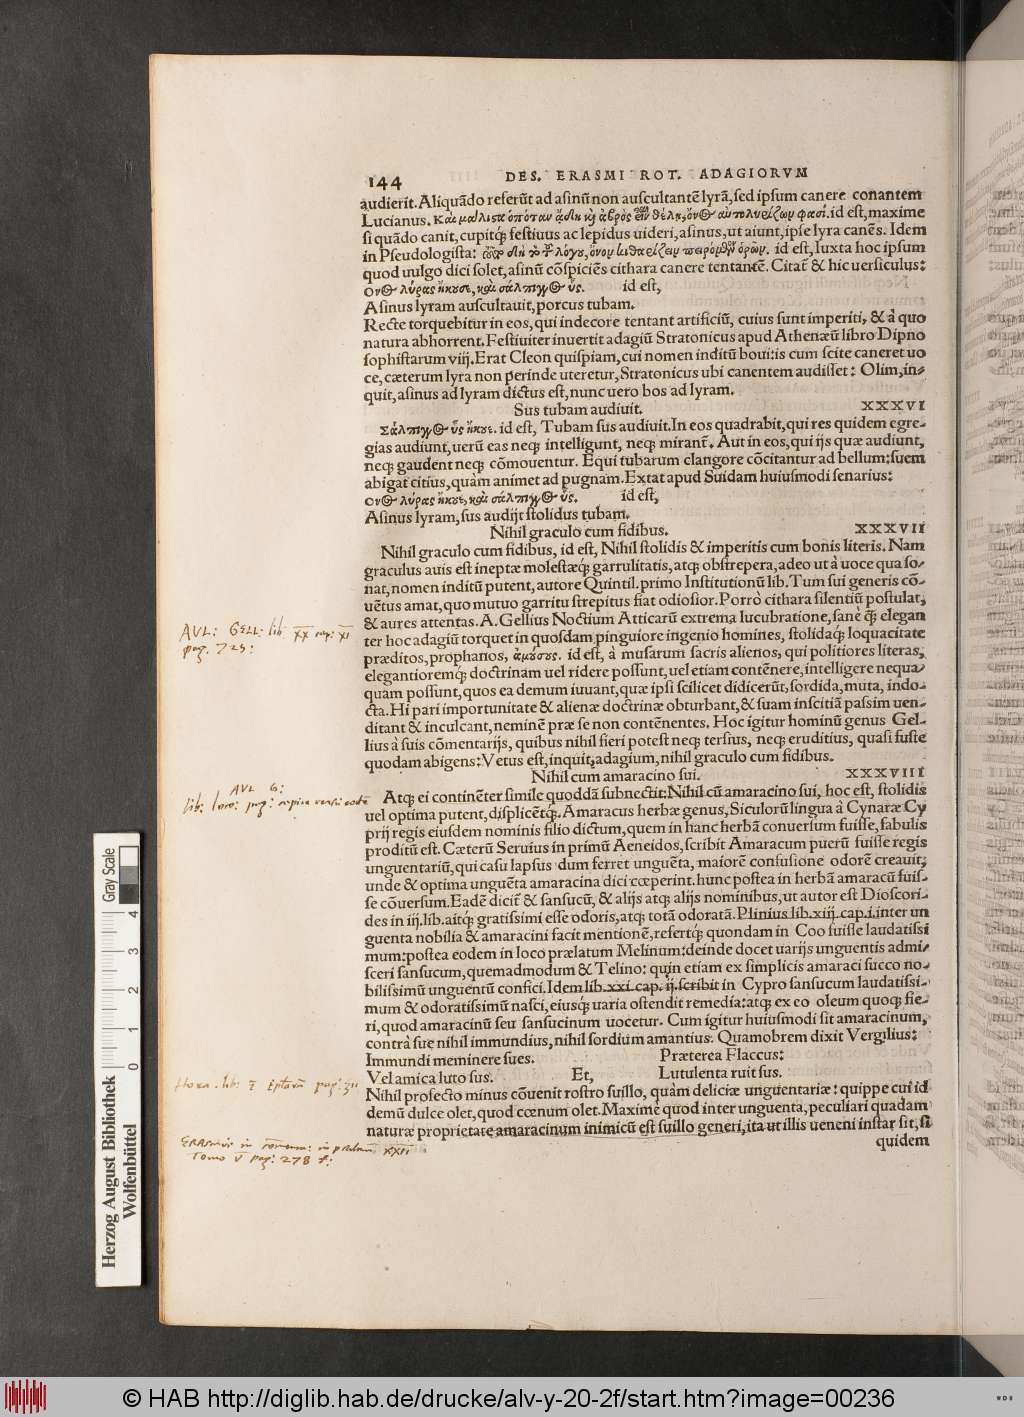 144 DES. ERASMI ROT. ADAGIORVM
audierit. Aliquãdo referũt ad asinũ non auscultantẽ lyrã, sed ipsum canere conantem
Lucianus. Καὶ μάλιστα ὁπόταν ᾄδειν καὶ ἁβρὸς εἶναι θέλῃ, ὄνος αὐτολυρίζων φασί. id est, maxime
si quãdo canit, cupitq; festiuus ac lepidus uideri, asinus, ut aiunt, ipse lyra canẽs. Idem
in Pseudologista: ὄνον κιθαρίζειν πειρώμενον ὁρῶν. id est, Iuxta hoc ipsum
quod uulgo dici solet, asinũ cõspiciẽs cithara canere tentantẽ. Citat̃ & hic uersiculus:
Ὄνος λύρας ἤκουε, καὶ σάλπιγγος ὗς. id est,
Asinus lyram auscultauit, porcus tubam.
Recte torquebitur in eos, qui indecore tentant artificiũ, cuius sunt imperiti, & à quo
natura abhorrent. Festiuiter inuertit adagiũ Stratonicus apud Athenæũ libro Dipno
sophistarum viij. Erat Cleon quispiam, cui nomen inditũ boui: is cum scite caneret uo
ce, cæterum lyra non perinde uteretur, Stratonicus ubi canentem audisset: Olim, in-
quit, asinus ad lyram dictus est, nunc uero bos ad lyram.
Sus tubam audiuit. XXXVI
Σάλπιγγος ὗς ἤκουε. id est, Tubam sus audiuit. In eos quadrabit, qui res quidem egre-
gias audiunt, uerũ eas neq; intelligunt, neq; mirant̃. Aut in eos, qui ijs quæ audiunt,
neq; gaudent neq; cõmouentur. Equi tubarum clangore cõcitantur ad bellum: suem
abigat citius, quàm animet ad pugnam. Extat apud Suidam huiusmodi senarius:
Ὄνος λύρας ἤκουε, καὶ σάλπιγγος ὗς. id est,
Asinus lyram, sus audijt stolidus tubam.
Nihil graculo cum fidibus. XXXVII
Nihil graculo cum fidibus, id est, Nihil stolidis & imperitis cum bonis literis. Nam
graculus auis est ineptæ molestæq; garrulitatis, atq; obstrepera, adeo ut à uoce qua so-
nat, nomen inditũ putent, autore Quintil. primo Institutionũ lib. Tum sui generis cõ-
uẽtus amat, quo mutuo garritu strepitus fiat odiosior. Porrò cithara silentiũ postulat,
& aures attentas. A. Gellius Noctium Atticarũ extrema lucubratione, sanè q̃ᷓ elegan
ter hoc adagiũ torquet in quosdam pinguiore ingenio homines, stolidaq; loquacitate
præditos, prophanos, ἀμούσους. id est, à musarum sacris alienos, qui politiores literas,
elegantioremq; doctrinam uel ridere possunt, uel etiam contẽnere, intelligere nequa-
quàm possunt, quos ea demum iuuant, quæ ipsi scilicet didicerũt, sordida, muta, indo-
cta. Hi pari importunitate & alienæ doctrinæ obturbant, & suam inscitiã passim uen-
ditant & inculcant, neminẽ præ se non contẽnentes. Hoc igitur hominũ genus Gel-
lius à suis cõmentarijs, quibus nihil fieri potest neq; tersius, neq; eruditius, quasi fuste
quodam abigens: Vetus est, inquit, adagium, nihil graculo cum fidibus.
Nihil cum amaracino sui. XXXVIII
Atq; ei continẽter simile quoddã subnectit: Nihil cũ amaracino sui, hoc est, stolidis
uel optima putent, displicẽtq;. Amaracus herbæ genus, Siculorũ lingua à Cynaræ Cy
prij regis eiusdem nominis filio dictum, quem in hanc herbã conuersum fuisse, fabulis
proditũ est. Cæterũ Seruius in primũ Aeneidos, scribit Amaracum puerũ fuisse regis
unguentariũ, qui casu lapsus dum ferret unguẽta, maiorẽ confusione odorẽ creauit,
unde & optima unguẽta amaracina dici cœperint. hunc postea in herbã amaracũ fuis-
se cõuersum. Eadẽ dicit̃ & sansucũ, & alijs atq; alijs nominibus, ut autor est Dioscori-
des in iij. lib. aitq; gratissimi esse odoris, atq; totã odoratã. Plinius lib. xiij. cap. i. inter un
guenta nobilia & amaracini facit mentionẽ, refertq; quondam in Coo fuisse laudatissi
mum: postea eodem in loco prælatum Melinum: deinde docet uarijs unguentis admi-
sceri sansucum, quemadmodum & Telino: quin etiam ex simplicis amaraci succo no-
bilissimũ unguentũ confici. Idem lib. xxi. cap. ij. scribit in Cypro sansucum laudatissi-
mum & odoratissimũ nasci, eiusq; uaria ostendit remedia: atq; ex eo oleum quoq; fie-
ri, quod amaracinũ seu sansucinum uocetur. Cum igitur huiusmodi sit amaracinum,
contrà sue nihil immundius, nihil sordium amantius. Quamobrem dixit Vergilius:
Immundi meminere sues. Præterea Flaccus:
Vel amica luto sus. Et, Lutulenta ruit sus.
Nihil profecto minus cõuenit rostro suillo, quàm deliciæ unguentariæ: quippe cui id
demũ dulce olet, quod cœnum olet. Maximè quod inter unguenta, peculiari quadam
naturæ proprietate amaracinum inimicũ est suillo generi, ita ut illis ueneni instar sit, si
quidem
AVL: GELL: lib XX cap: XI
pag. 729:
AVL G:
lib: loco: pag: supra versu eodẽ
Hora. lib: I Epl'arũ pag:
ERASMUS in
Tomo V pag: 278 f:
Gray Scale
0 1 2 3 4
Herzog August Bibliothek
Wolfenbüttel
© HAB http://diglib.hab.de/drucke/alv-y-20-2f/start.htm?image=00236